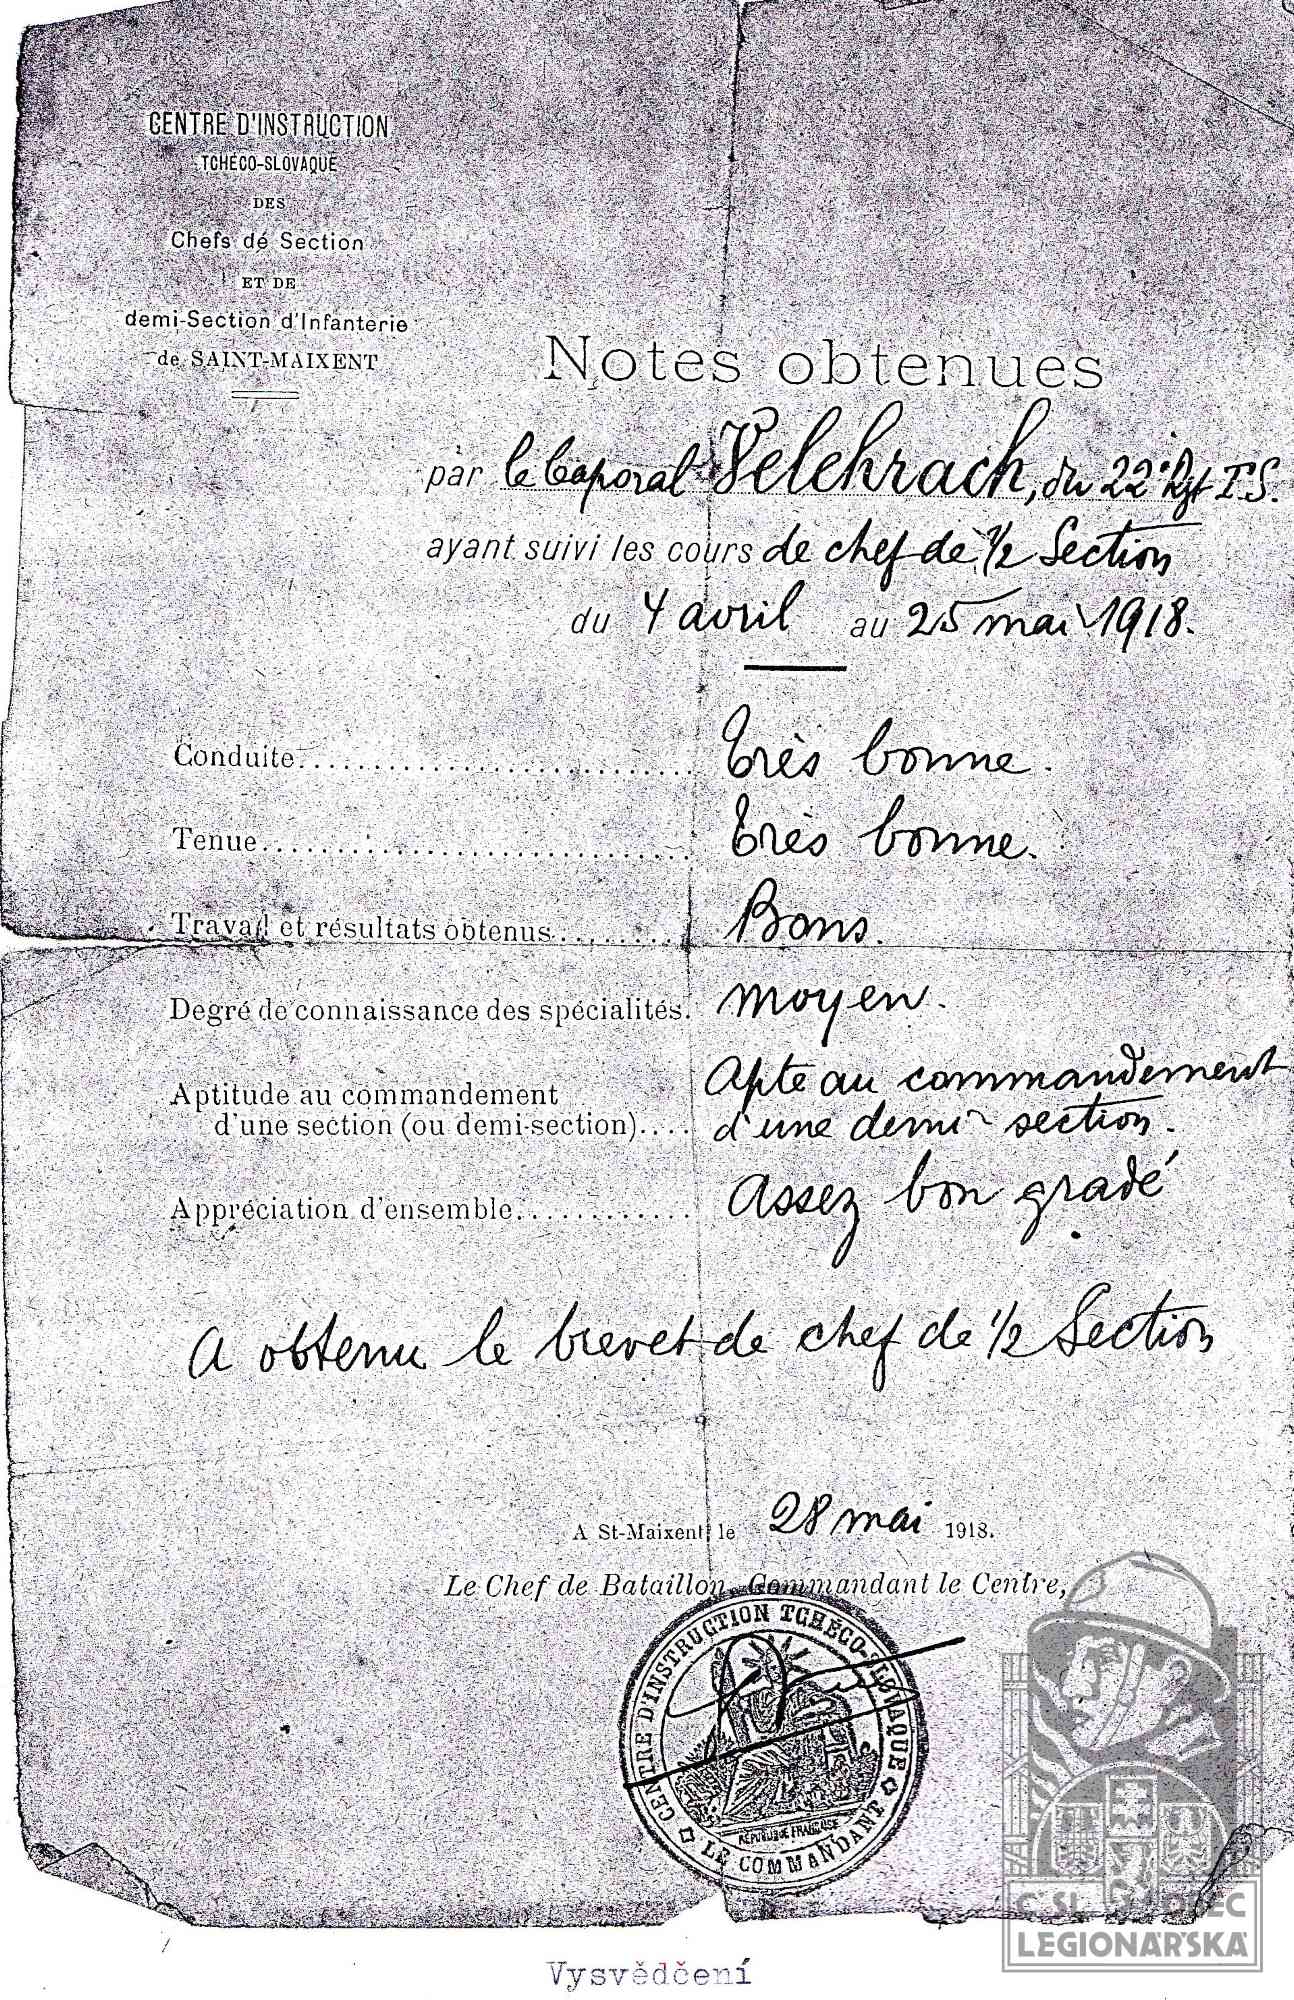 CENTRE D'INSTRUCTION
TCHÉCO-SLOVAQUE
DES
Chefs de Section
ET DE
demi-Section d'Infanterie
de SAINT-MAIXENT
Notes obtenues
par le Caporal Velehrach, du 22e Rgt T.S.
ayant suivi les cours de chef de 1/2 Section
du 4 avril au 25 mai 1918.
Conduite Très bonne.
Tenue Très bonne.
Travail et résultats obtenus Bons.
Degré de connaissance des spécialités. moyen.
Aptitude au commandement
d'une section (ou demi-section) Apte au commandement
d'une demi-section.
Appréciation d'ensemble Assez bon gradé
A obtenu le brevet de chef de 1/2 Section
A St-Maixent, le 28 mai 1918.
Le Chef de Bataillon, Commandant le Centre,
CENTRE D'INSTRUCTION TCHÉCO-SLOVAQUE
RÉPUBLIQUE FRANÇAISE
LE COMMANDANT
ČSL. OBEC
LEGIONÁŘSKÁ
Vysvědčení